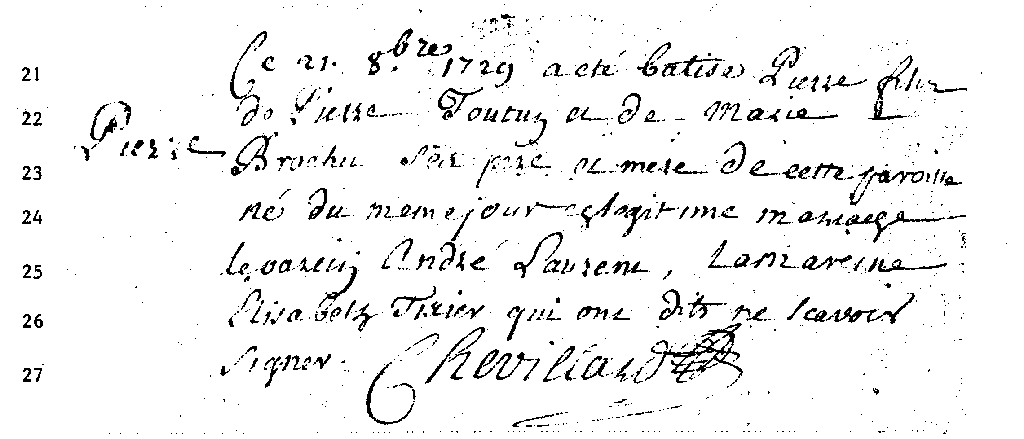 21 Ce 21. 8.bre 1729 a eté batisé Pierre fils
22 de Pierre Toutuz et de Marie
Pierre
23 Brochu ses pere et mere de cette paroisse
24 né du meme jour et legitime mariage
25 le parein André Laurent, la mareine
26 Elisabeth Tixier qui ont dits ne scavoir
27 signer. Chevillard